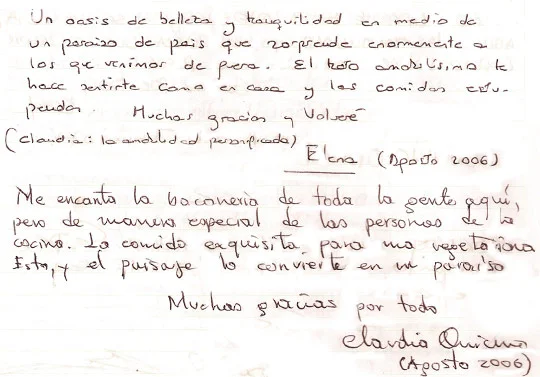 Un oasis de belleza y tranquilidad en medio de
un paraiso de pais que sorprende enormemente a
los que venimos de fuera. El trato amabilísimo te
hace sentirte como en casa y las comidas estu-
pendas. Muchas gracias y Volveré
(Claudia: la amabilidad personificada)
Elena (Agosto 2006)
Me encanta la bacaneria de toda la gente aquí,
pero de manera especial de las personas de la
cocina. La comida exquisita para una vegetariana
Esta, y el paisaje lo convierte en un paraíso
Muchas gracias por todo
Claudia
(Agosto 2006)